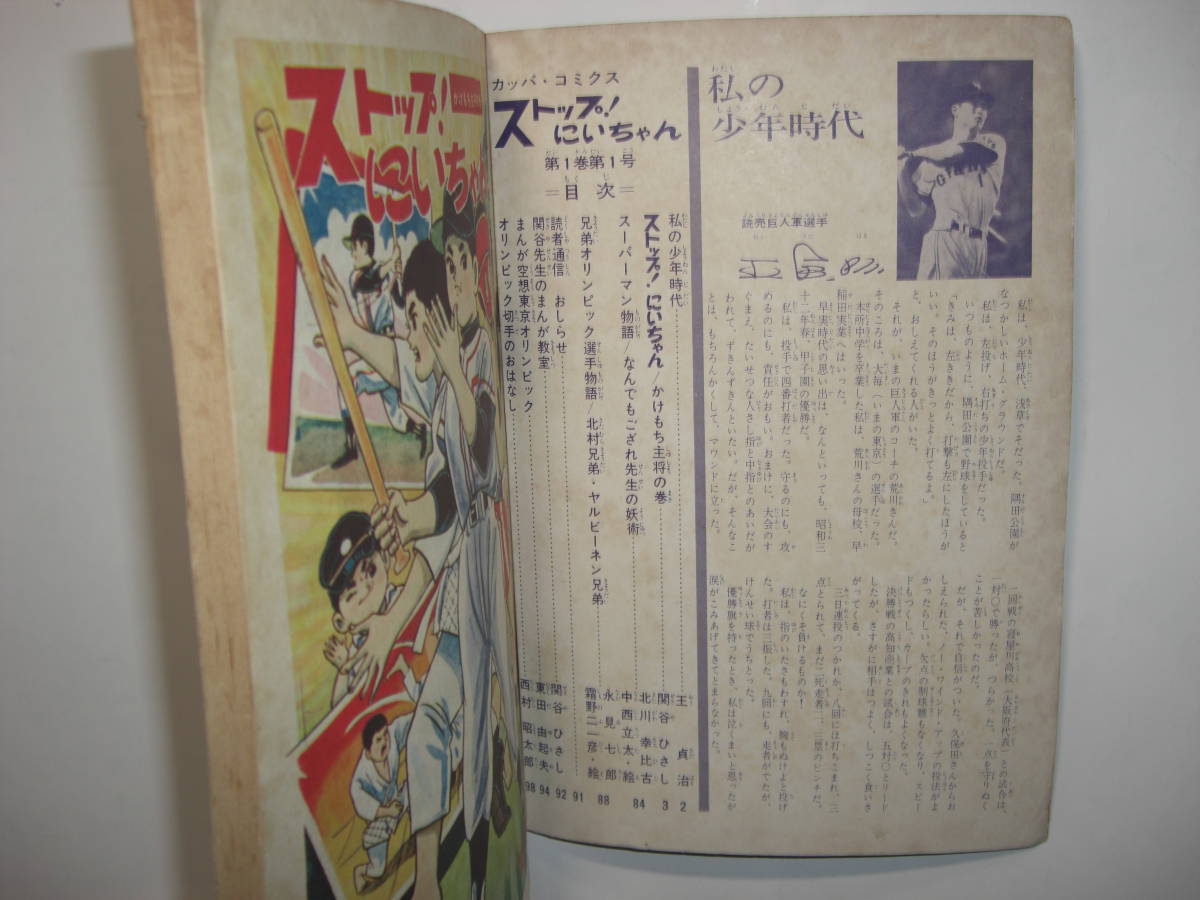 私の
少年時代
読売巨人軍選手
私は、少年時代、浅草でそだった。隅田公園が
なつかしいホーム・グラウンドだ。
私は、左投げ、右打ちの少年投手だった。
いつものように、隅田公園で野球をしていると
「きみは、左ききだから、打撃も左にしたほうが
いい。そのほうがきっとよく打てるよ。」
と、おしえてくれる人がいた。
それが、いまの巨人軍のコーチの荒川さんだ。
そのころは、大毎(いまの東京)の選手だった。
本所中学を卒業した私は、荒川さんの母校、早
稲田実業へはいった。
早実時代の思い出は、なんといっても、昭和三
十二年春、甲子園の優勝だ。
私は、投手で四番打者だった。守るのにも、攻
めるのにも、責任がおもい。おまけに、大会のす
ぐまえ、たいせつな人さし指と中指とのあいだが
われて、ずきんずきんといたい。だが、そんなこ
とは、もちろんかくして、マウンドに立った。
一回戦の寝屋川高校(大阪府代表)との試合は、
一対〇で勝ったが、つらかった。一点を守りぬく
ことが苦しかったのだ。
だが、それで自信がついた。久保田さんからお
しえられた、ノー・ワインド・アップの投法がよ
かったらしい。欠点の制球難もなくなり、スピー
ドもつくし、カーブのきれもよくなった。
決勝戦の高知商業との試合は、五対〇とリード
したが、さすがに相手はつよく、しつこく食いさ
がってくる。
三日連投のつかれか、八回には打ちこまれ、三
点とられて、まだ二死走者一、三塁のピンチだ。
なにくそ負けるものか!
私は、指のいたさもわすれ、腕もぬけよと投げ
た。打者は三振した。九回にも、走者がでたが、
けんせい球でうちとった。
優勝旗を持ったとき、私は泣くまいと思ったが
涙がこみあげてきてとまらなかった。
カッパ・コミクス
ストップ!
にいちゃん
第1巻第1号
=目次=
私の少年時代 王 貞治 2
ストップ!にいちゃん/かけもち主将の巻 関谷 ひさし 3
スーパーマン物語/なんでもござれ先生の妖術 北川 幸比古 中西立太・絵 84
兄弟オリンピック選手物語/北村兄弟・ヤルビーネン兄弟 永見七郎 霜野二一彦・絵 88
読者通信 おしらせ 91
関谷先生のまんが教室 関谷 ひさし 92
まんが空想東京オリンピック 東田 由起夫 94
オリンピック切手のおはなし 西村 昭太郎 98
ストップ!
にいちゃん